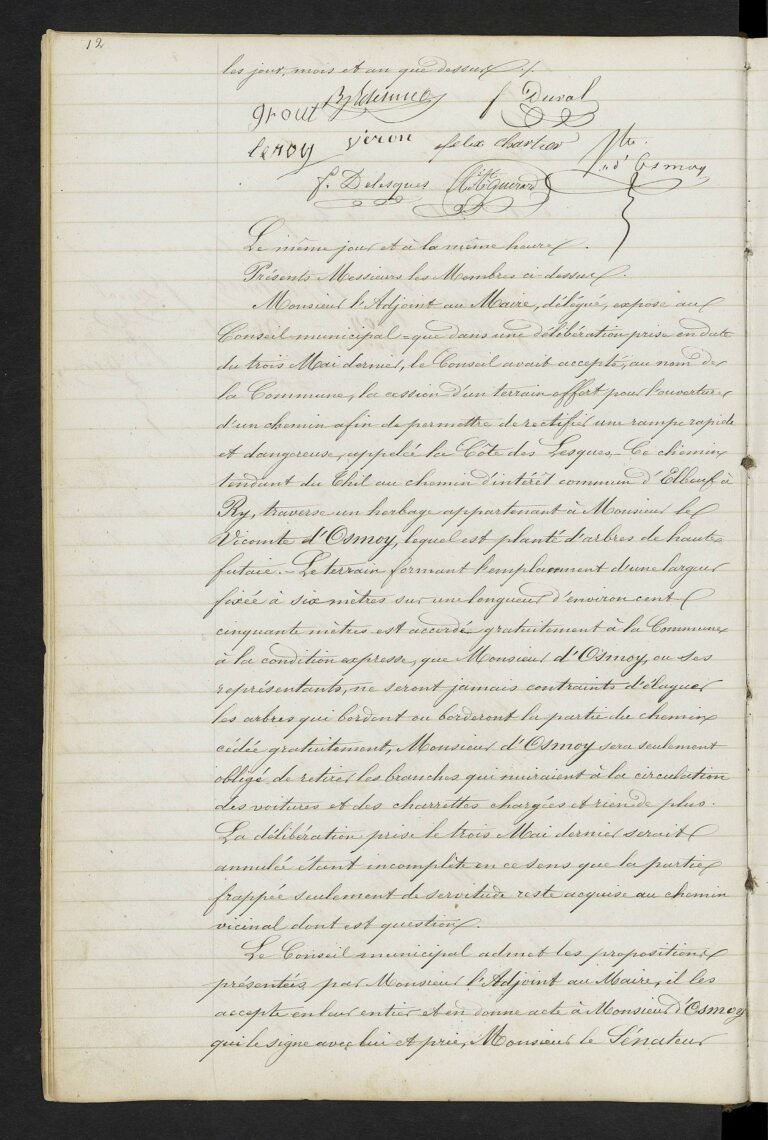 12
les jour, mois et an que dessus /.
Grout
f Duval
leroy Veron felix chartier Vte
d'Osmoy
f. Delesques Guerard
Le même jour et à la même heure.
Présents Messieurs les Membres ci-dessus.
Monsieur l'Adjoint au Maire, délégué, expose au
Conseil municipal = que dans une délibération prise en date
du trois Mai dernier, le Conseil avait accepté, au nom de
la Commune, la cession d'un terrain offert pour l'ouverture
d'un chemin afin de permettre de rectifier une rampe rapide
et dangereuse, appelée la Côte des Lesques. Ce chemin
tendant du Thil au chemin d'intérêt commun d'Elbeuf à
Ry, traverse un herbage appartenant à Monsieur le
Vicomte d'Osmoy, lequel est planté d'arbres de haute
futaie. - Le terrain formant l'emplacement d'une largeur
fixée à six mètres sur une longueur d'environ cent
cinquante mètres est accordé gratuitement à la Commune
à la condition expresse, que Monsieur d'Osmoy, ou ses
représentants, ne seront jamais contraints d'élaguer
les arbres qui bordent ou borderont la partie du chemin
cédée gratuitement, Monsieur d'Osmoy sera seulement
obligé de retirer les branches qui nuiraient à la circulation
des voitures et des charrettes chargées et rien de plus.
La délibération prise le trois Mai dernier serait
annulée étant incomplète en ce sens que la partie
frappée seulement de servitude reste acquise au chemin
vicinal dont est question.
Le Conseil municipal admet les propositions
présentées par Monsieur l'Adjoint au Maire, il les
accepte en leur entier et en donne acte à Monsieur d'Osmoy
qui le signe avec lui et prie, Monsieur le Sénateur